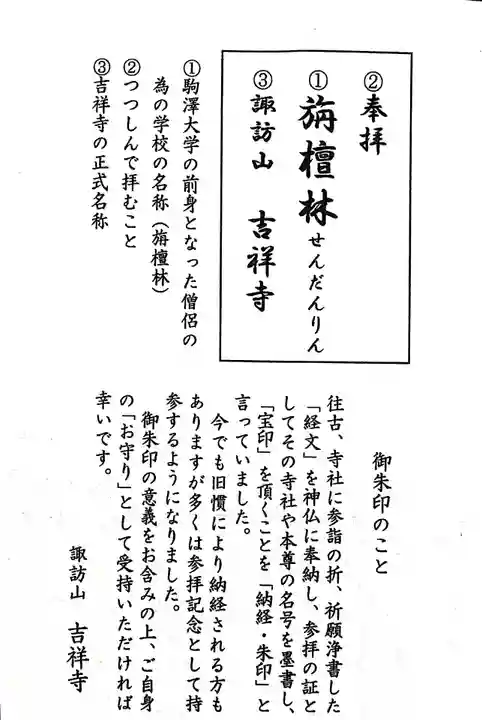 ②奉拝
①旃檀林せんだんりん
③諏訪山 吉祥寺
①駒澤大学の前身となった僧侶の
為の学校の名称（旃檀林）
②つつしんで拝むこと
③吉祥寺の正式名称
御朱印のこと
往古、寺社に参詣の折、祈願浄書した
「経文」を神仏に奉納し、参拝の証と
してその寺社や本尊の名号を墨書し、
「宝印」を頂くことを「納経・朱印」と
言っていました。
今でも旧慣により納経される方も
ありますが多くは参拝記念として持
参するようになりました。
御朱印の意義をお含みの上、ご自身
の「お守り」として受持いただければ
幸いです。
諏訪山 吉祥寺